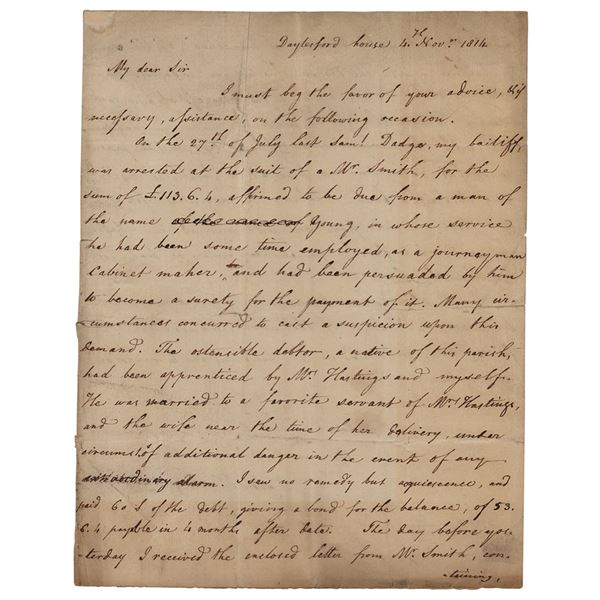 Daylesford house 4th Novr 1814.
My dear Sir
I must beg the favor of your advice, & if
necessary, assistance, on the following occasion.
On the 27th of July last Saml Dadge, my bailiff,
was arrested at the suit of a Mr. Smith, for the
sum of £.113.6.4, affirmed to be due from a man of
the name of the name of Young, in whose service
he had been some time employed, as a journeyman
Cabinet maker, and had been persuaded by him
to become a surety for the payment of it. Many cir-
cumstances concurred to cast a suspicion upon this
demand. The ostensible debtor, a native of this parish,
had been apprenticed by Mrs Hastings and myself.
He was married to a favorite servant of Mrs Hastings,
and the wife near the time of her delivery, under
circumsts of additional danger in the event of any
extraordinary alarm. I saw no remedy but acquiescence, and
paid 60 £ of the debt, giving a bond for the balance, of 53.
6.4 payable in 4 months after date. The day before yes-
terday I received the enclosed letter from Mr. Smith, con-
-taining,